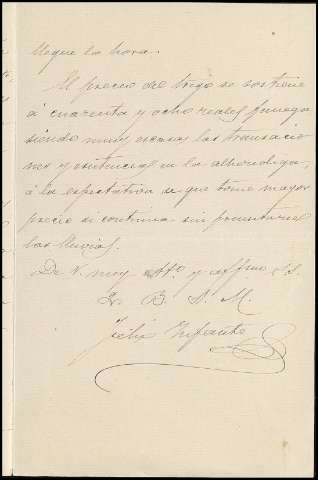 llegue la hora.
El precio del trigo se sostiene
á cuarenta y ocho reales fanega
siendo muy escasas las transacio
nes y existencias en la alhondiga,
á la espectativa de que tome mayor
precio si continua sin presentarse
las lluvias.
De V. muy Atto. y affmo S. S.
Q. B. S. M.
Felix Infante